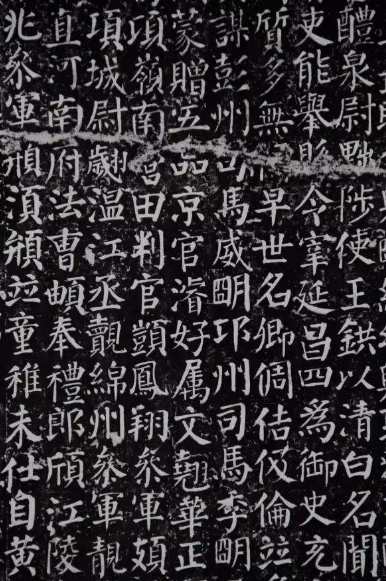 醴泉尉黜陟使王鉷以清白名聞
吏能舉縣令宰延昌四為御史充
質多無早世名卿倜佶伋倫竝
謀彭州司馬威明邛州司馬季明
蒙贈五品京官濬好属文翹華正
頃嶺南營田判官顗鳳翔叅軍頗
項城尉翽温江丞覿綿州叅軍靚
直河南府法曹頔奉禮郎頎江陵
兆叅軍頍湏頲竝童稚未仕自黃